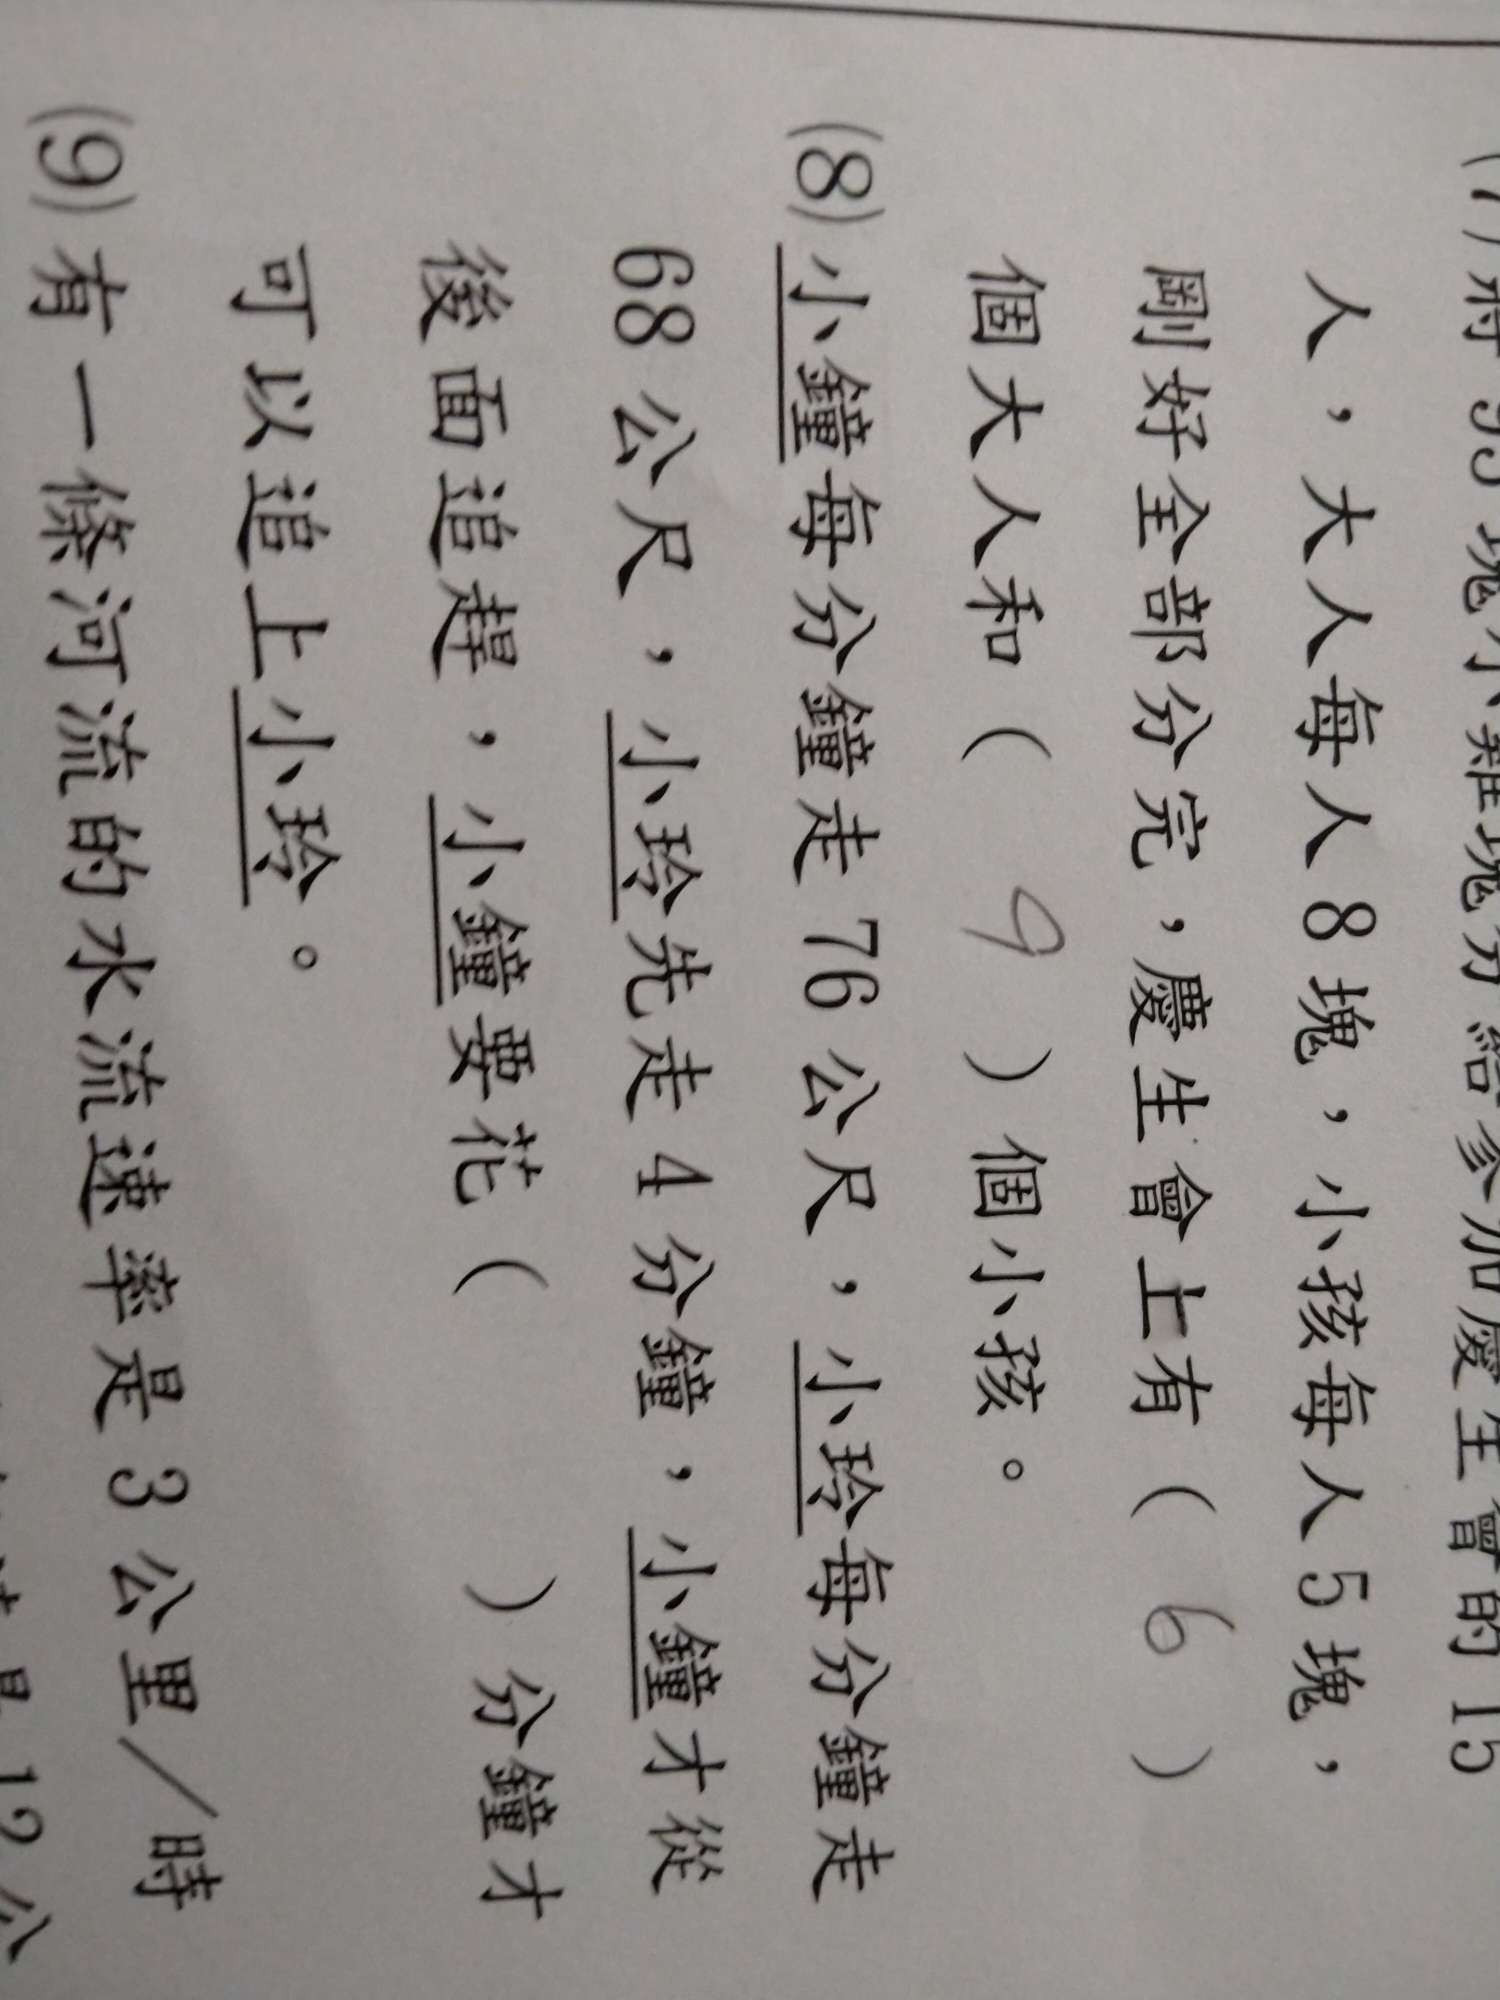 (7)將 93 塊小雞塊分給參加慶生會的 15
人，大人每人 8 塊，小孩每人 5 塊，
剛好全部分完，慶生會上有（ 6 ）
個大人和（ 9 ）個小孩。
(8)小鐘每分鐘走 76 公尺，小玲每分鐘走
68 公尺，小玲先走 4 分鐘，小鐘才從
後面追趕，小鐘要花（ ）分鐘才
可以追上小玲。
(9)有一條河流的水流速率是 3 公里／時
12 公